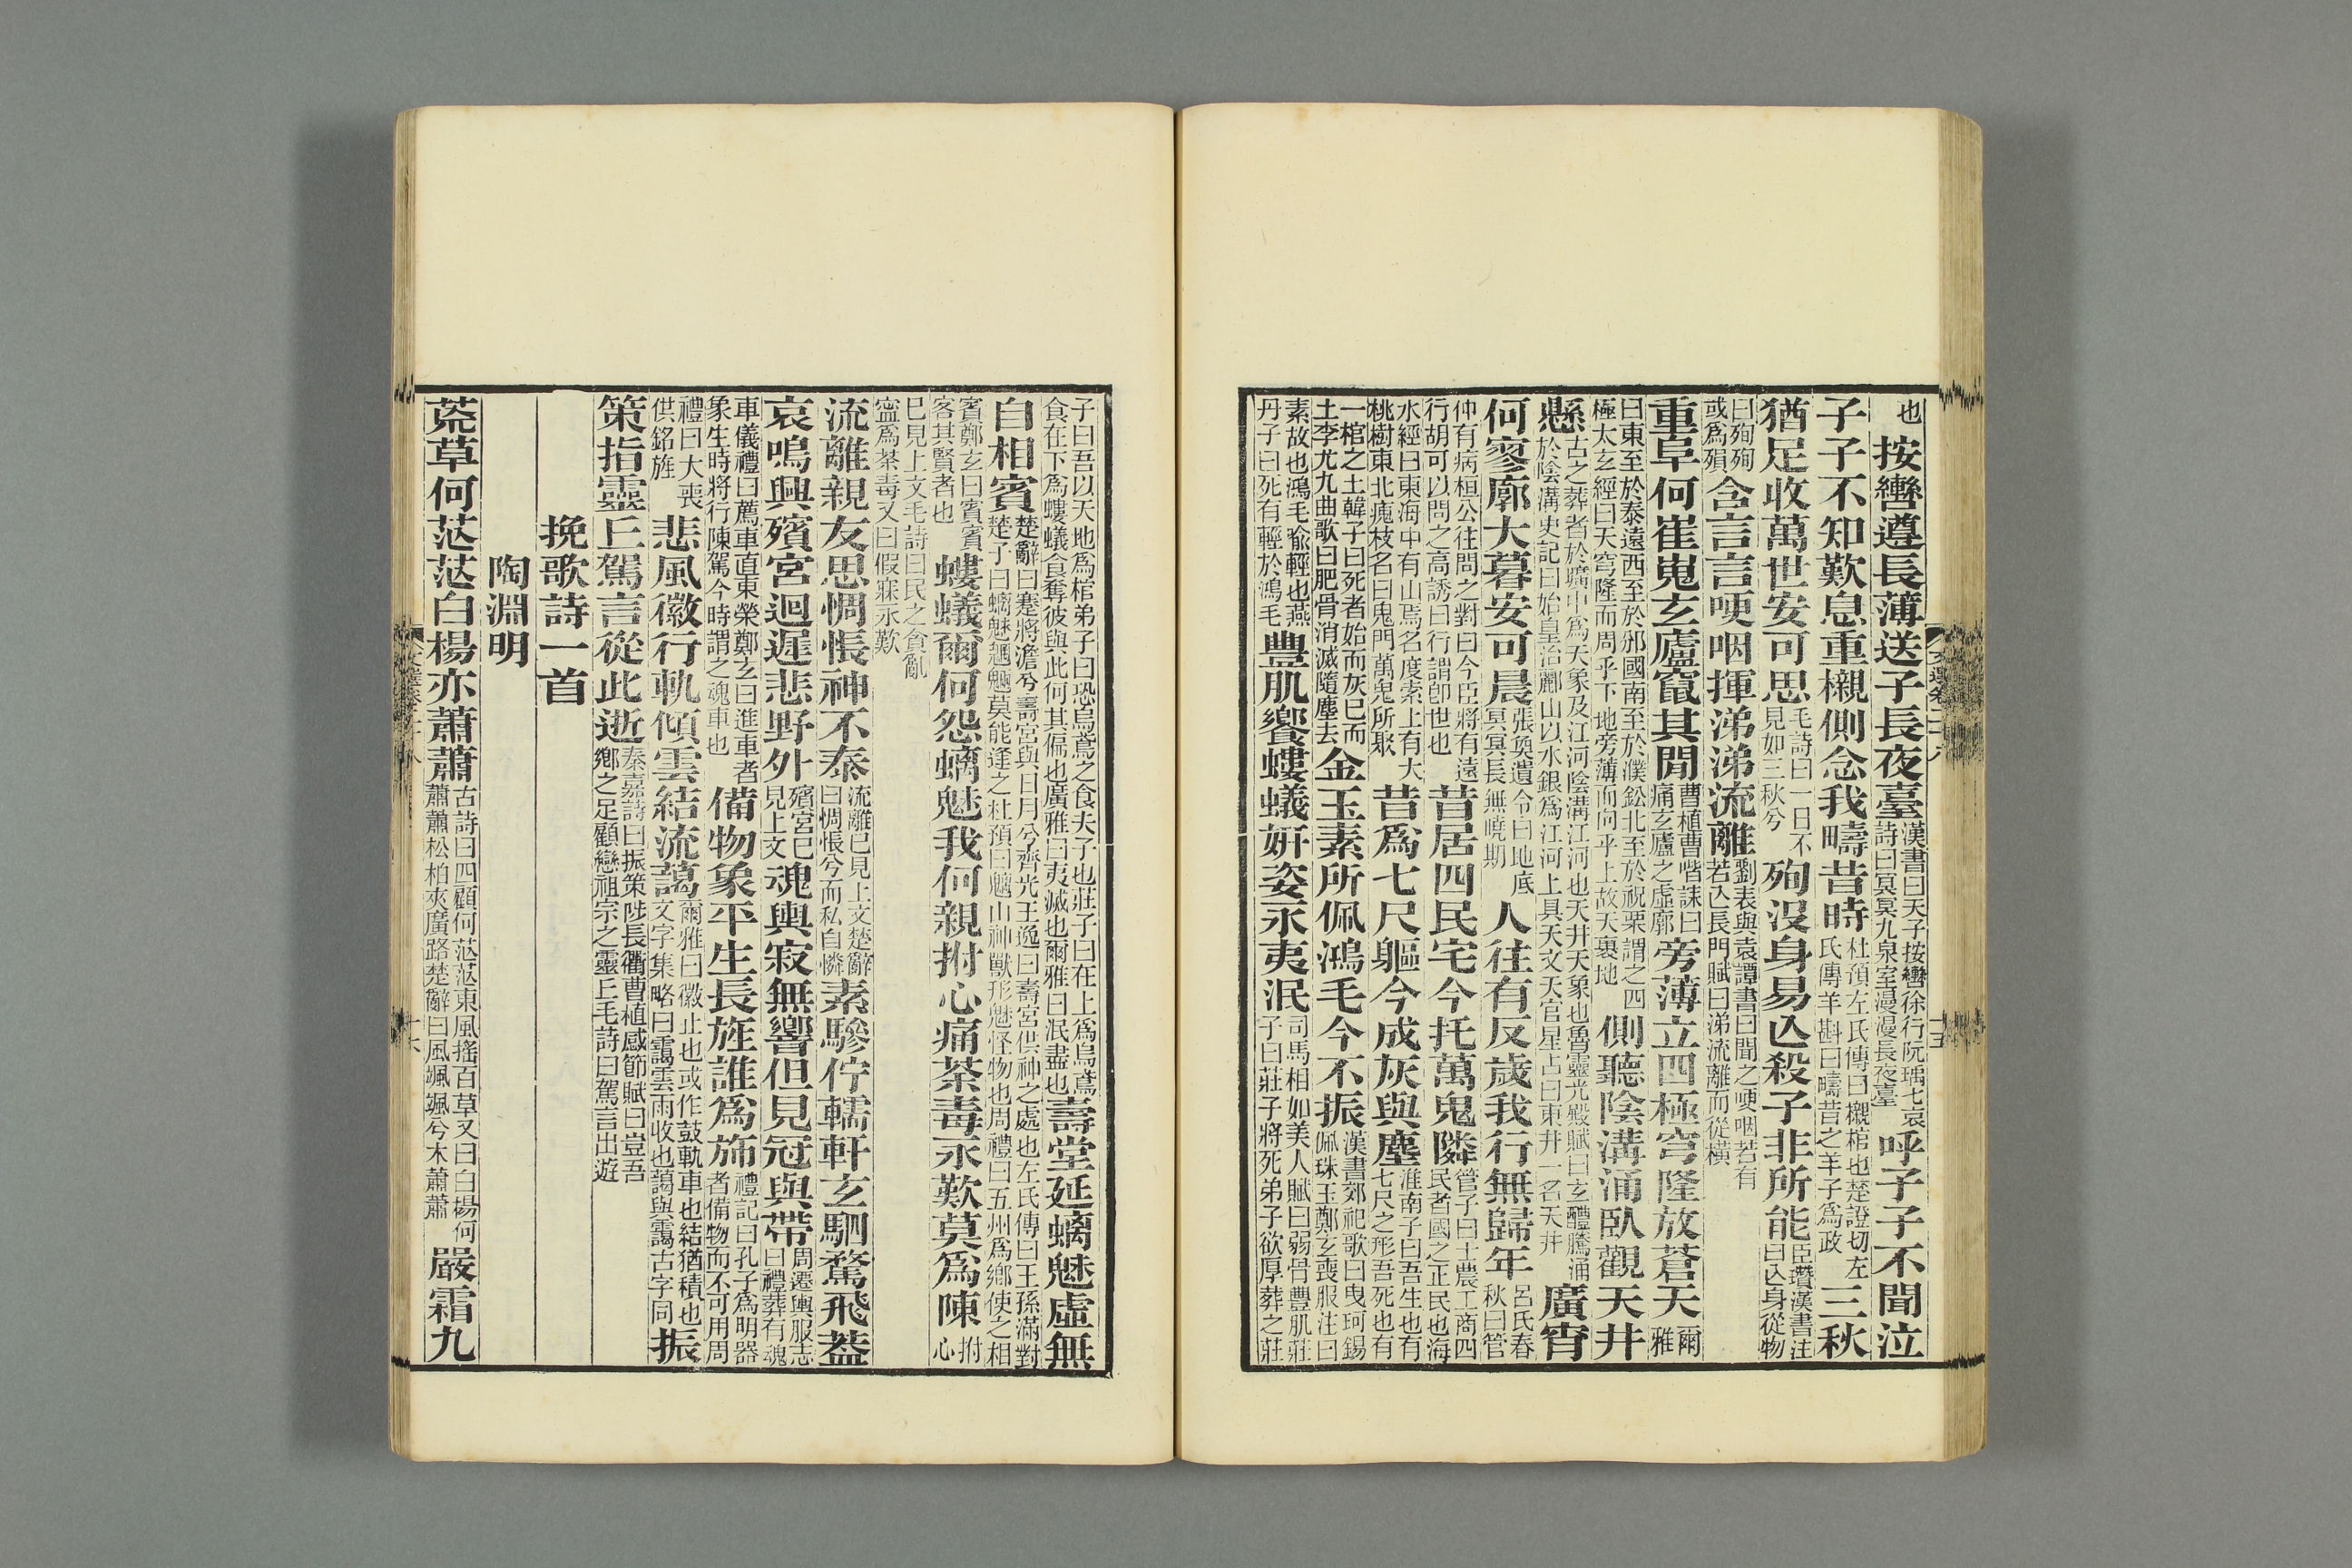 也按轡遵長薄送子長夜臺漢書曰天子按轡徐行阮瑀七哀詩曰冥冥九泉室漫漫長夜臺呼子子不聞泣
子子不知歎息重櫬側念我疇昔時杜預左氏傳曰櫬棺也楚證切左氏傳羊斟曰疇昔之羊子為政三秋
猶足收萬世安可思毛詩曰一日不見如三秋兮殉没身易亾殺子非所能臣瓚漢書注曰亾身從物
曰殉殉或為殞含言言哽咽揮涕涕流離劉表與袁譚書曰聞之哽咽若有若亾長門賦曰涕流離而從橫
重阜何崔嵬玄廬竄其閒曹植曹喈誄曰痛玄廬之虛廓旁薄立四極穹隆放蒼天爾雅
曰東至於泰遠西至於邠國南至於濮鈆北至於祝栗謂之四極太玄經曰天穹隆而周乎下地旁薄而向乎上故天裹地側聽陰溝涌臥觀天井
懸古之葬者於壙中為天象及江河陰溝江河也天井天象也魯靈光殿賦曰玄醴騰涌於陰溝史記曰始皇治酈山以水銀為江河上具天文天官星占曰東井一名天井廣宵
何寥廓大暮安可晨張奐遺令曰地底冥冥長無曉期人往有反歲我行無歸年呂氏春秋曰管
仲有病桓公往問之對曰今臣將有遠行胡可以問之高誘曰行謂卽世也昔居四民宅今托萬鬼隣管子曰士農工商四民者國之正民也海
水經曰東海中有山焉名度索上有大桃樹東北瘣枝名曰鬼門萬鬼所聚昔爲七尺軀今成灰與塵淮南子曰吾生也有七尺之形吾死也有
一棺之土韓子曰死者始而灰已而土李尤九曲歌曰肥骨消滅隨塵去金玉素所佩鴻毛今不振漢書郊祀歌曰曳珂錫佩珠玉鄭玄喪服注曰
素故也鴻毛喻輕也燕丹子曰死有輕於鴻毛豐肌饗螻蟻姸姿永夷泯司馬相如美人賦曰弱骨豐肌莊子曰莊子將死弟子欲厚葬之莊
子曰吾以天地爲棺弟子曰恐烏鳶之食夫子也莊子曰在上爲烏鳶食在下爲螻蟻食奪彼與此何其偏也廣雅曰夷滅也爾雅曰泯盡也壽堂延螭魅虛無
自相賓楚辭曰蹇將澹兮壽宮與日月兮齊光王逸曰壽宮供神之處也左氏傳曰王孫滿對楚子曰螭魅魍魎莫能逢之杜預曰螭山神獸形魅怪物也周禮曰五州爲鄉使之相
賓鄭玄曰賓賓客其賢者也螻蟻爾何怨螭魅我何親拊心痛荼毒永歎莫爲陳拊心
已見上文毛詩曰民之貪亂寧爲荼毒又曰假寐永歎
流離親友思惆悵神不泰流離已見上文楚辭曰惆悵兮而私自憐素驂佇轜軒玄駟騖飛葢
哀鳴興殯宮迴遲悲野外殯宮已見上文魂輿寂無響但見冠與帶周遷輿服志曰禮葬有魂
車儀禮曰薦車直東榮鄭玄曰進車者象生時將行陳駕今時謂之魂車也備物象平生長旌誰爲旆禮記曰孔子為明器者備物而不可用周
禮曰大喪供銘旌悲風徽行軌傾雲結流藹爾雅曰徽止也或作鼓軌車也結猶積也文字集略曰靄雲雨收也藹與靄古字同振
策指靈丘駕言從此逝秦嘉詩曰振策陟長衢曹植感節賦曰豈吾鄉之足顧戀祖宗之靈丘毛詩曰駕言出遊
挽歌詩一首
陶淵明
荒草何茫茫白楊亦蕭蕭古詩曰四顧何茫茫東風搖百草又曰白楊何蕭蕭松柏夾廣路楚辭曰風颯颯兮木蕭蕭嚴霜九